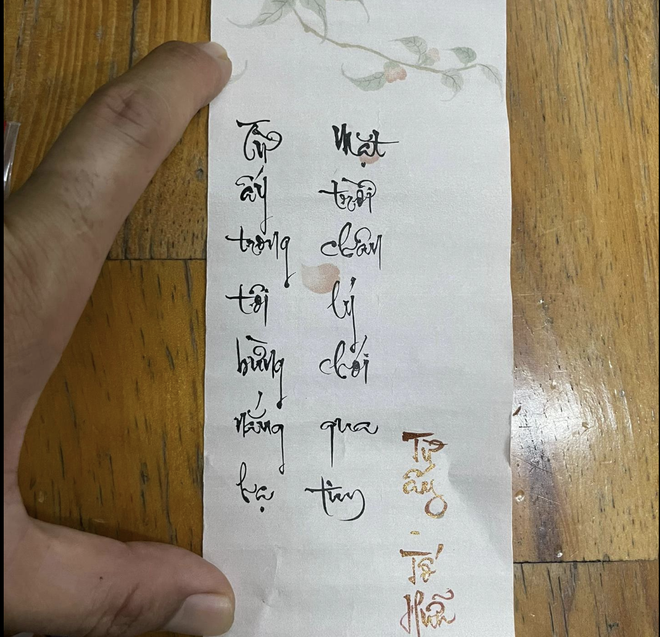 Từ
ấy
trong
tôi
bừng
nắng
hạ
Mặt
trời
chân
lý
chói
qua
tim
Từ
ấy
-
Tố
Hữu